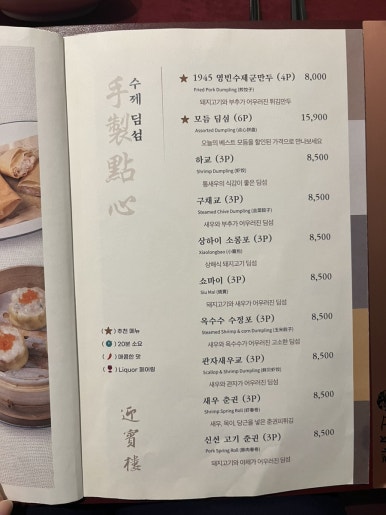 手製點心
수제 딤섬
★ 1945 영빈수제군만두 (4P) 8,000
Fried Pork Dumpling (煎饺子)
돼지고기와 부추가 어우러진 튀김만두
★ 모듬 딤섬 (6P) 15,900
Assorted Dumpling (点心拼盘)
오늘의 베스트 모듬을 할인된 가격으로 만나보세요
하교 (3P) 8,500
Shrimp Dumpling (虾饺)
통새우의 식감이 좋은 딤섬
구채교 (3P) 8,500
Steamed Chive Dumpling (韭菜饺子)
새우와 부추가 어우러진 딤섬
상하이 소롱포 (3P) 8,500
Xiaolongbao (小籠包)
상해식 돼지고기 딤섬
쇼마이 (3P) 8,500
Siu Mai (燒賣)
돼지고기와 새우가 어우러진 딤섬
옥수수 수정포 (3P) 8,500
Steamed Shrimp & corn Dumpling
새우와 옥수수가 어우러진 고소한 딤섬
관자새우교 (3P) 8,500
Scallop & Shrimp Dumpling
새우와 관자가 어우러진 딤섬
새우 춘권 (3P) 8,500
Shrimp Spring Roll (虾春卷)
새우, 목이, 당근을 넣은 춘권피튀김
신선 고기 춘권 (3P) 8,500
Pork Spring Roll
돼지고기와 야채가 어우러진 딤섬
(★) 추천 메뉴
( ) 20분 소요
( ) 매콤한 맛
( ) Liquor 페어링
迎賓樓